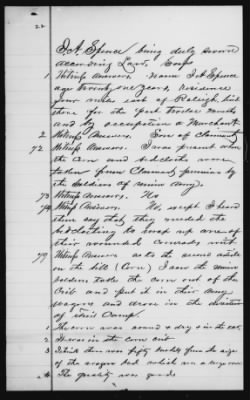 22
J. A. Spence being duly sworn
according Law, says
1 Witness Answers. Name J A Spence
age twenty one years, residence
four miles east of Raleigh, lived
there for the past twelve months
and by occupation a Merchant.
2 Witness Answers, Son of Claimant
72 Witness Answers. I was present when
the Corn and bedclothes were
taken from Claimants premises by
the Soldiers of union Army.
73 Witness Answers. No
74 Witness Answers. Yes, I heard
them say that they needed the
bedclothing to wrap up one of
their wounded comrades with
79 Witness Answers as to the second article
on the bill (Corn) I saw the union
Soldiers take the corn out of the
Crib and put it in their Army
wagons and drove in the direction
of their Camp.
1 The corn was sound & dry in the ear,
2 It was in the corn crib
3 I think there was fifty bushels from the size
of the wagon bed which was a large one
4 The quality was good